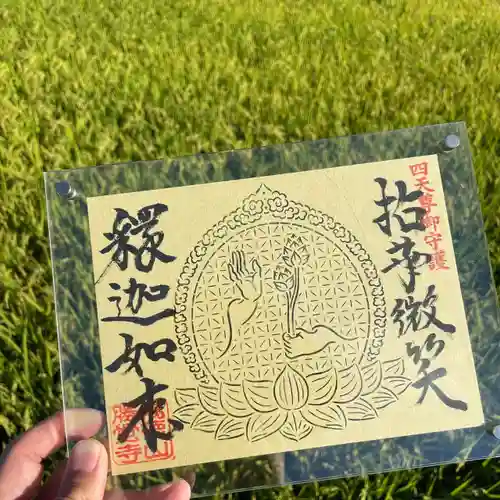 四天尊御守護
拈華微笑
釋迦如来